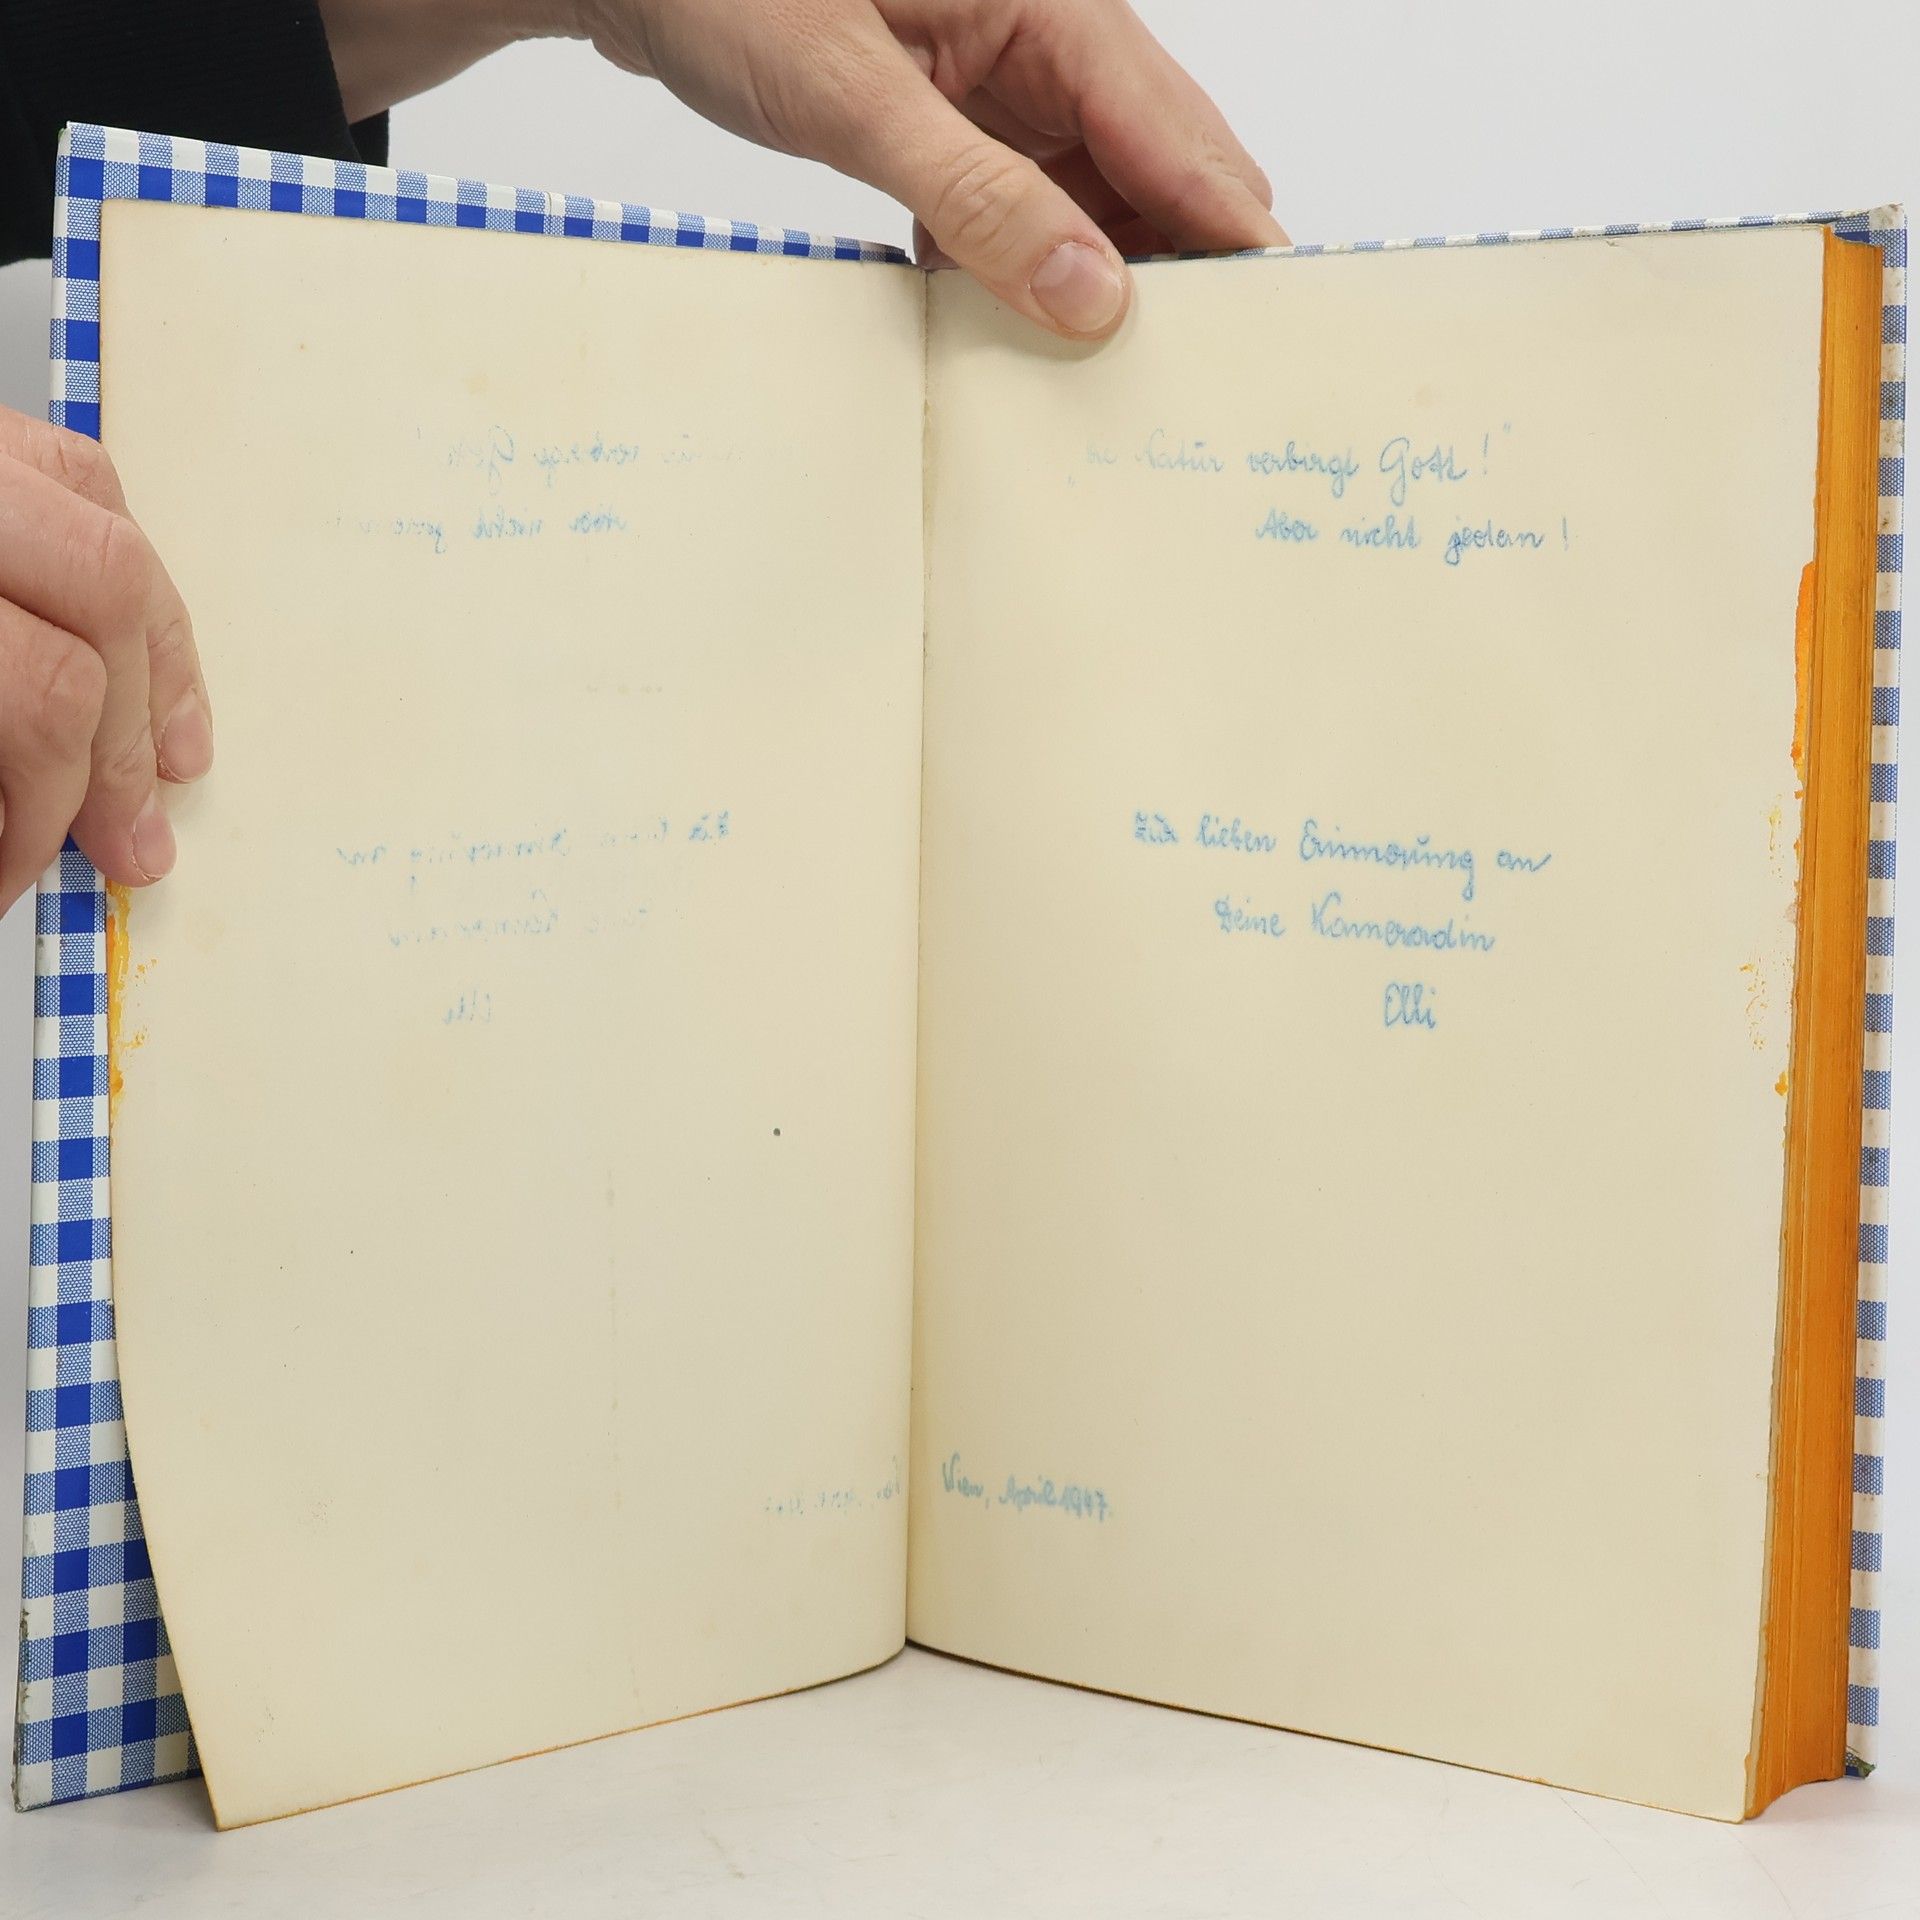 „Die Natur verbirgt Gott!"
Aber nicht jedem!
Zur lieben Erinnerung an
Deine Kameradin
Elli
Wien, April 1947.